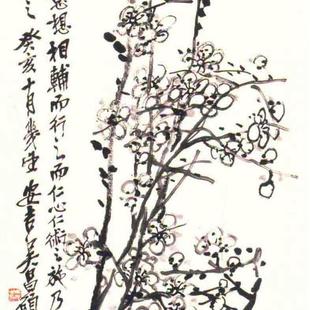 思想相輔而行之而仁心仁術之施乃
之癸亥十月幾望安吉吳昌碩